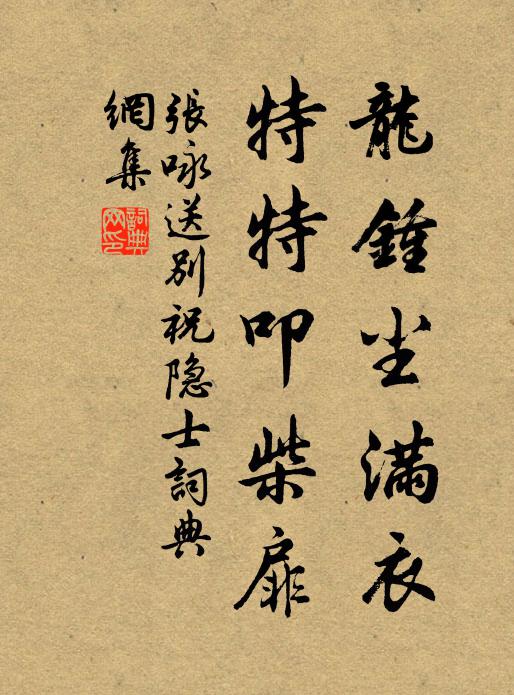 龍鍾尘滿衣
特特叩柴扉
張咏送别祝隐士詞典
網集
詞典
网印